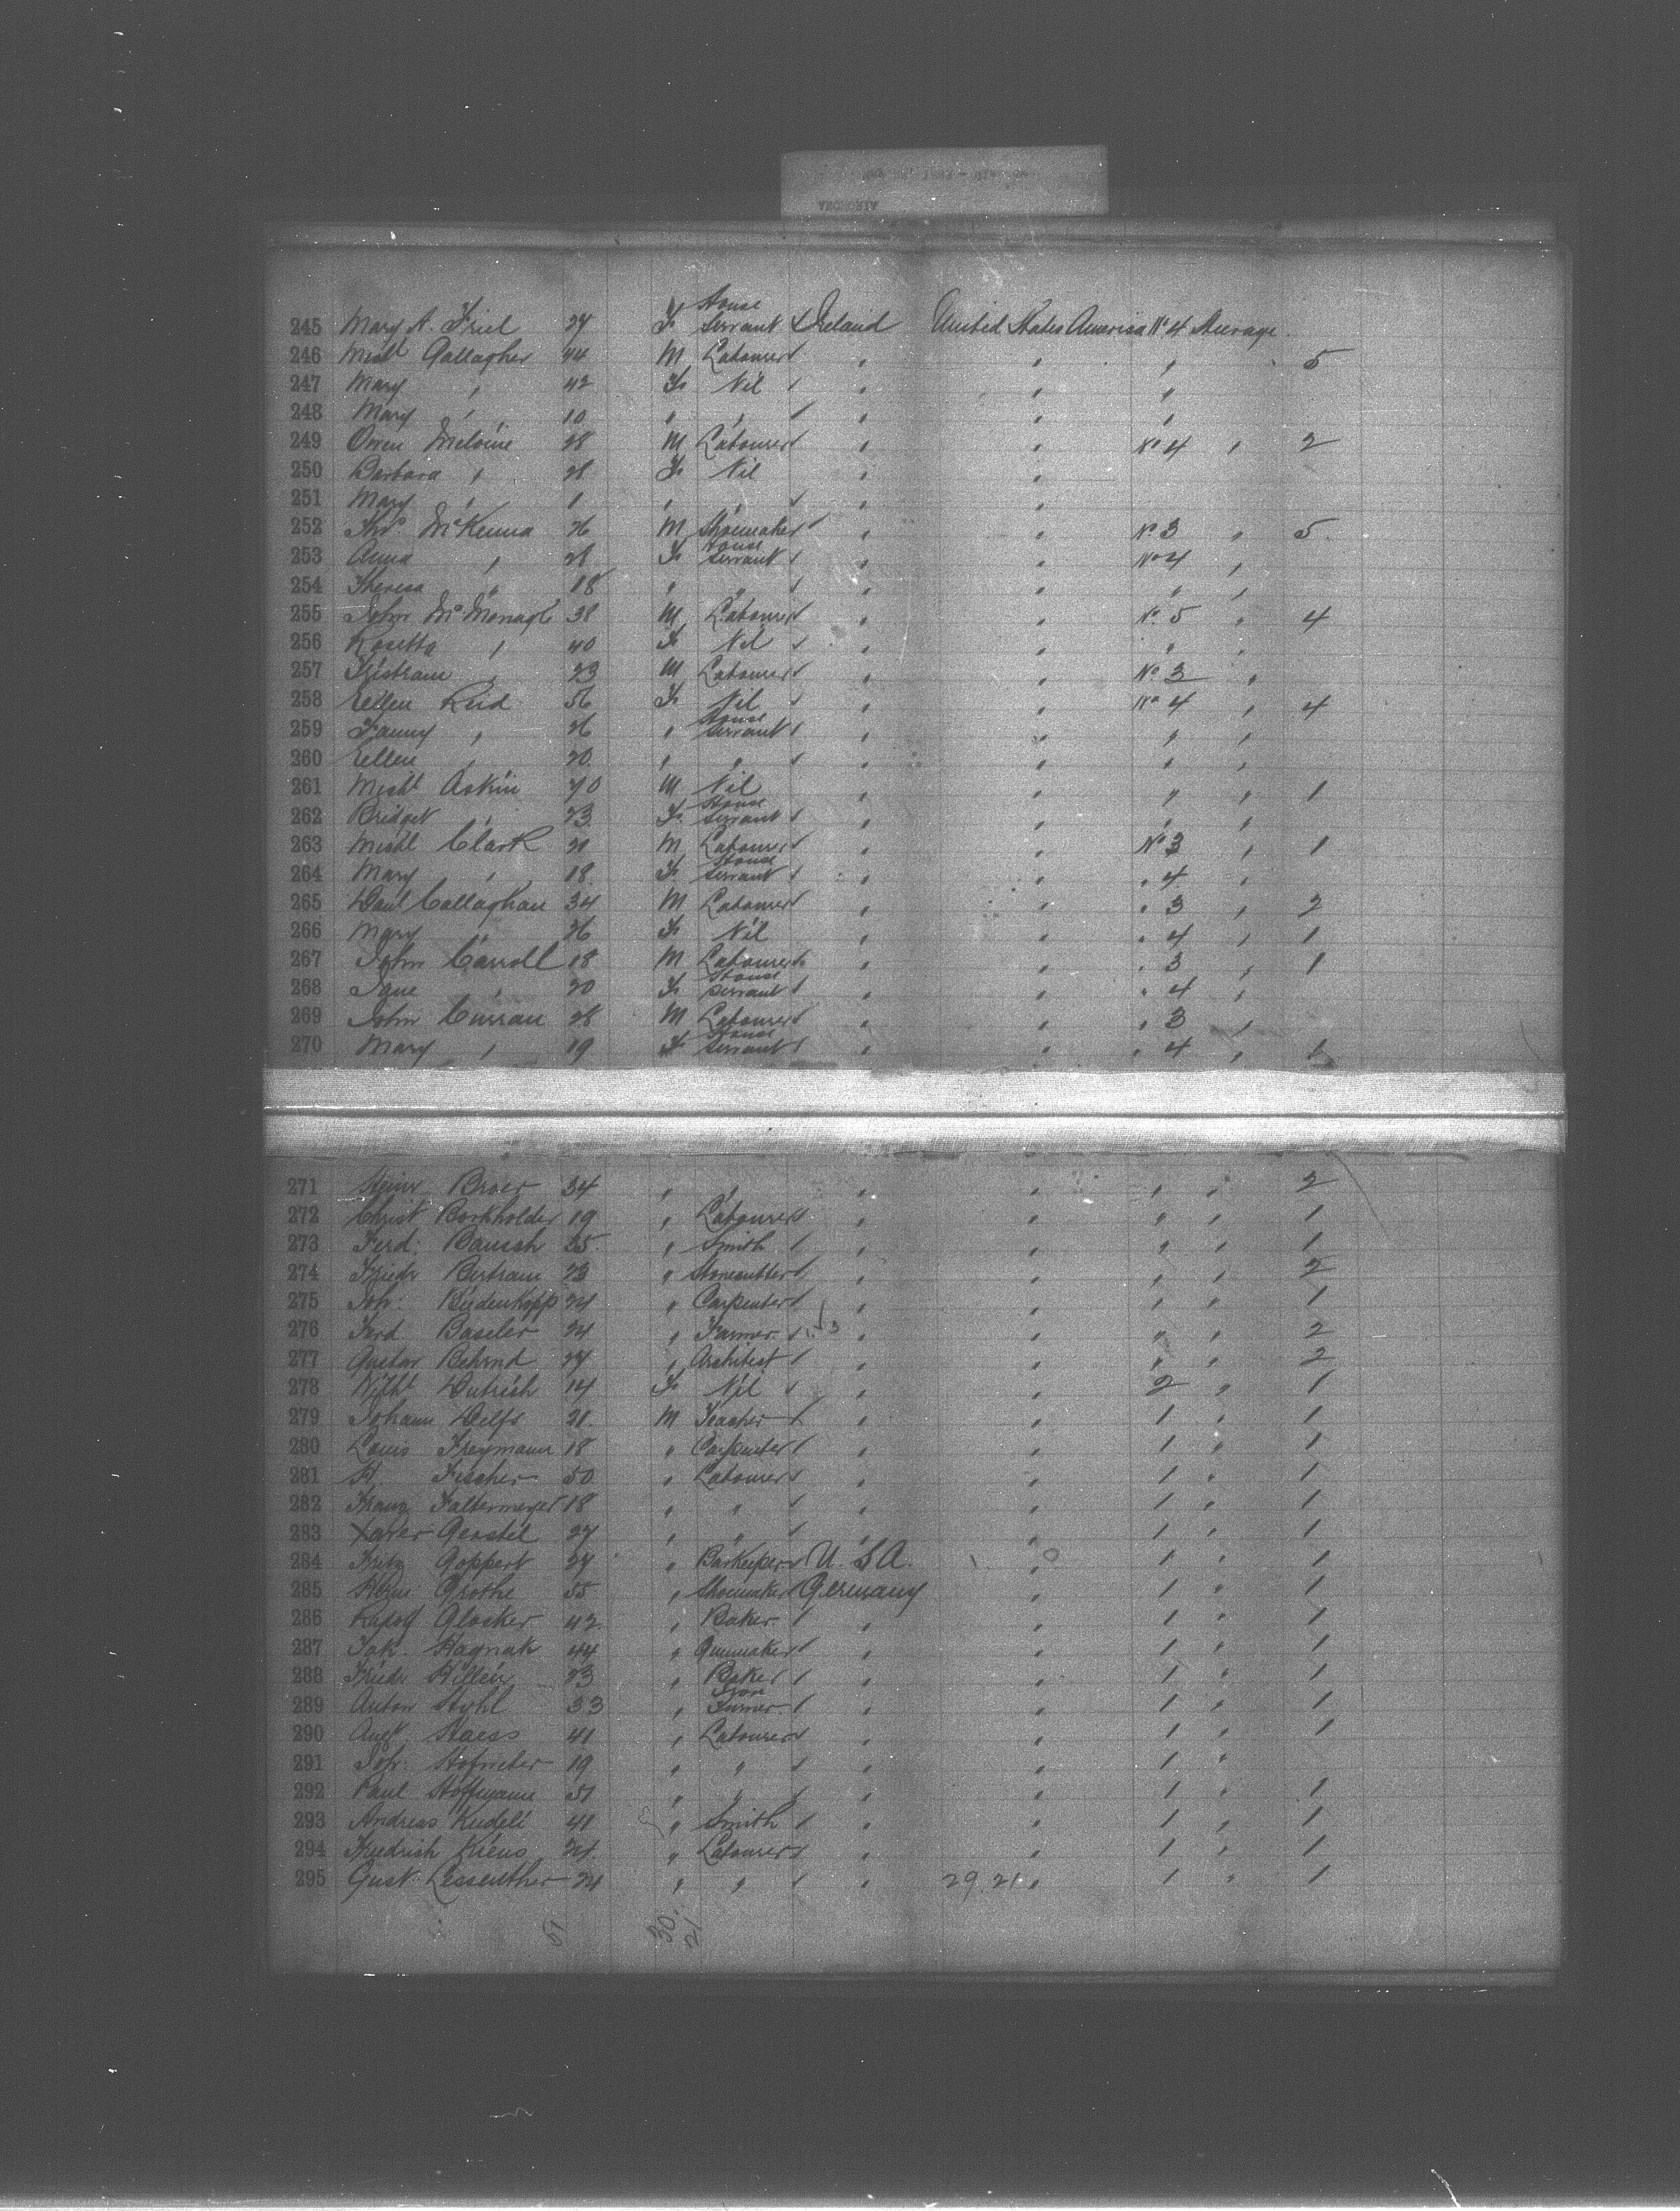 245 Mary A. Friel 27 F House Servant Ireland United States America No 4 Steerage
246 Michl Gallagher 44 M Labourer " " " 5
247 Mary " 42 F Nil " " "
248 Mary " 10 " " " " "
249 Owen 28 M Labourer " " No 4 " 2
250 Barbara " 28 F Nil " "
251 Mary " 1 " " " "
252 Thos McKenna 26 M Shoemaker " " No 3 " 5
253 Anna " 28 F House Servant " " No 4 "
254 Theresa " 18 " " " " " "
255 John McMonagl 38 M Labourer " " No 5 " 4
256 Rosetta " 40 F Nil " " " "
257 Tristram " 23 M Labourer " " No 3 "
258 Ellen Reid 56 F Nil " " No 4 " 4
259 Fanny " 26 " House Servant " " " "
260 Ellen " 20 " " " " " "
261 Michl Askin 70 M Nil " " " " 1
262 Bridget " 23 F House Servant " " " "
263 Michl Clark 21 M Labourer " " No 3 " 1
264 Mary " 18 F House Servant " " " 4 "
265 Danl Callaghan 34 M Labourer " " " 3 " 2
266 Mary " 26 F Nil " " " 4 " 1
267 John Carroll 18 M Labourer " " " 3 " 1
268 Jane " 20 F House Servant " " " 4 "
269 John Curran 28 M Labourer " " " 3 "
270 Mary " 19 F House Servant " " " 4 " 1
271 Heinr Broer 34 " " " " " " 2
272 Christ Borkholder 19 " Labourer " " " " 1
273 Ferd: Bausch 25 " Smith " " " " 1
274 Friedr Bertram 23 " Stonecutter " " " " 2
275 Joh: Biedenkopp 24 " Carpenter " " " " 1
276 Ferd Baseler 24 " Farmer " " " " 2
277 Gustav Behrnd 27 " Architect " " " " 2
278 Wilht Dutrich 14 F Nil " " 2 " 1
279 Johann Delfs 21 M Teacher " " 1 " 1
280 Louis Freymann 18 " Carpenter " " 1 " 1
281 H. Fischer 50 " Labourer " " 1 " 1
282 Franz Faltermeyer 18 " " " " 1 " 1
283 Xaver Gerstil 27 " " " " 1 " 1
284 Fritz Goppert 27 " Barkeeper U. S. A. " 1 " 1
285 Heinr Grothe 55 " Shoemaker Germany " 1 " 1
286 Glocker 42 " Baker " " 1 " 1
287 Jak. Hagnak 44 " Gunmaker " " 1 " 1
288 Friedr Hillen 23 " Baker " " 1 " 1
289 Anton Hyhl 33 " Iron Turner " " 1 " 1
290 Aug Haess 41 " Labourer " " 1 " 1
291 Joh: Hofrieter 19 " " " " 1 "
292 Paul Hoffmann 51 " " " " 1 " 1
293 Andreas Kudeli 41 " Smith " " 1 " 1
294 Friedrich Kiens 24 " Labourer " " 1 " 1
295 Gust Lessenther 24 " " " 29.21 " 1 " 1
61 30. 21